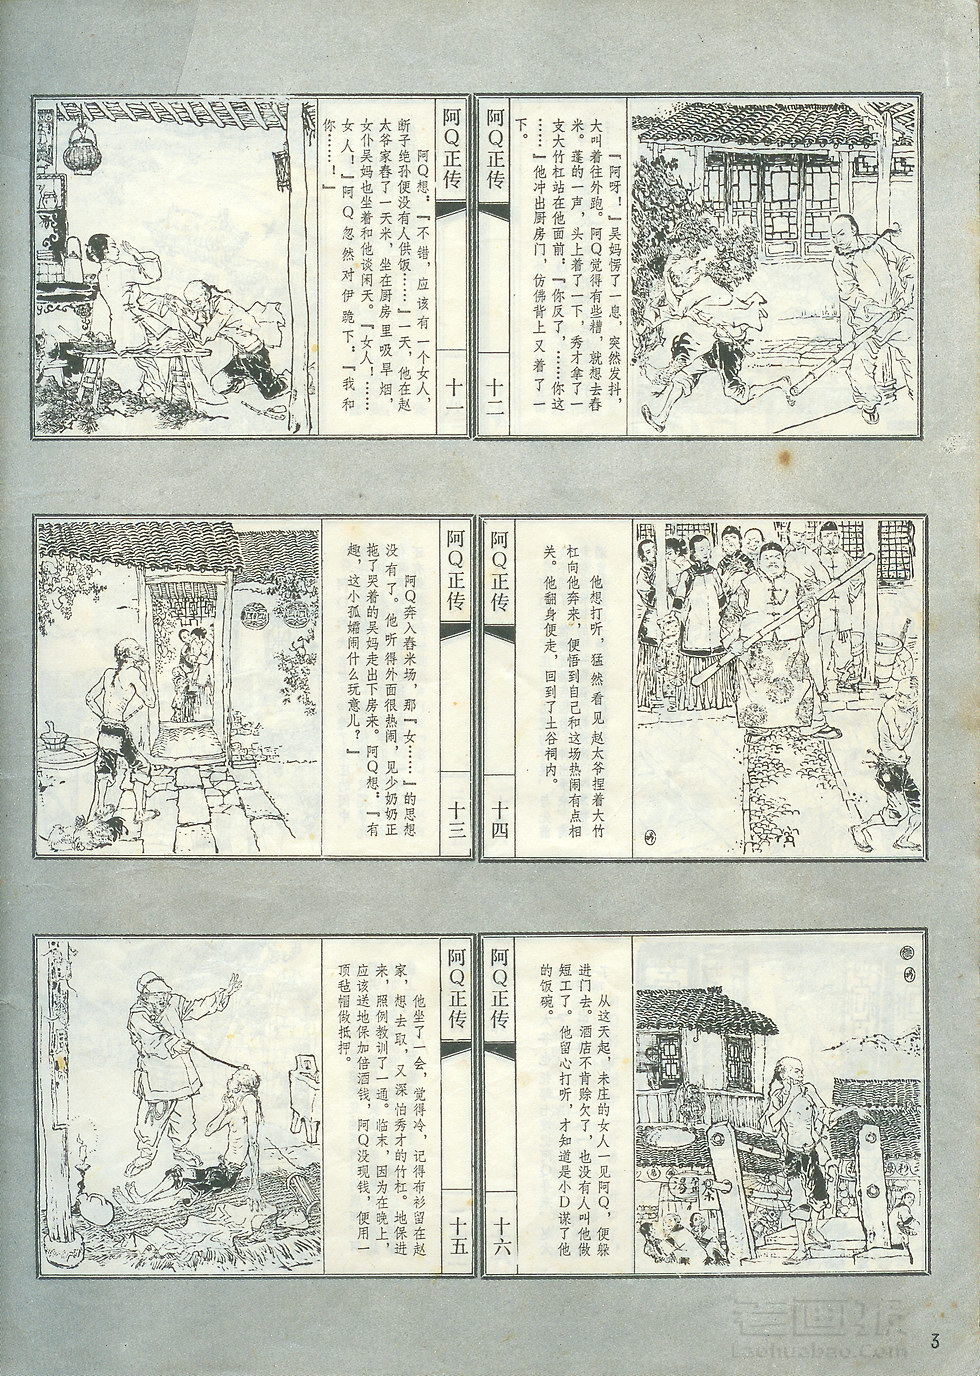 阿Q正传
十一
阿Q想：“不错，应该有一个女人，
断子绝孙便没有人供饭……”一天，他在赵
太爷家舂了一天米，坐在厨房里吸旱烟，
女仆吴妈也坐着和他谈闲天。“女人！……
女人！”阿Q忽然对伊跪下：“我和
你……！”
阿Q正传
十二
“阿呀！”吴妈愣了一息，突然发抖，
大叫着往外跑。阿Q觉得有些糟，就想去舂
米。蓬的一声，头上着了一下，秀才拿了一
支大竹杠站在他面前：“你反了，……你这
……”他冲出厨房门，仿佛背上又着了一
下。
阿Q正传
十三
阿Q奔入舂米场，那“女……”的思想
没有了。他听得外面很热闹，见少奶奶正
拖了哭着的吴妈走出下房来。阿Q想：“有
趣，这小孤孀闹什么玩意儿？”
阿Q正传
十四
他想打听，猛然看见赵太爷捏着大竹
杠向他奔来，便悟到自己和这场热闹有点相
关。他翻身便走，回到了土谷祠内。
阿Q正传
十五
他坐了一会，觉得冷，记得布衫留在赵
家，想去取，又深怕秀才的竹杠。地保进
来，照例教训了一通。临末，因为在晚上，
应该送地保加倍酒钱，阿Q没现钱，便用一
顶毡帽做抵押。
阿Q正传
十六
从这天起，未庄的女人一见阿Q，便躲
进门去。酒店不肯赊欠了，也没有人叫他做
短工了。他留心打听，才知道是小D谋了他
的饭碗。
老画报
Laohuabao.Com
3